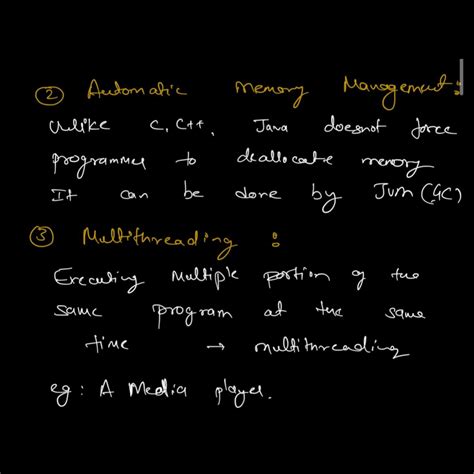 ② Automatic Memory Management:
Unlike C, C++, Java doesnot force
programmer to deallocate memory
It can be done by JVM (GC)
③ Multithreading :
Executing Multiple portion of the
same program at the same
time → multithreading
eg: A Media player.